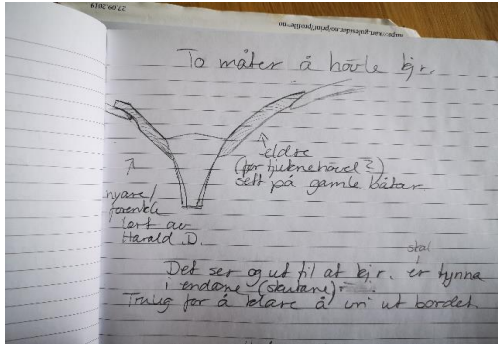 27.09.2019
To måter å hövle kjr.
eldre
(før tjuknehövel?)
sett på gamle båtar
nyare/
forenkle
lært av
Harald D.
skal
Det ser og ut til at kjr. er tynna
i endane (skutane).
Truig for å klare å vri ut bordet.